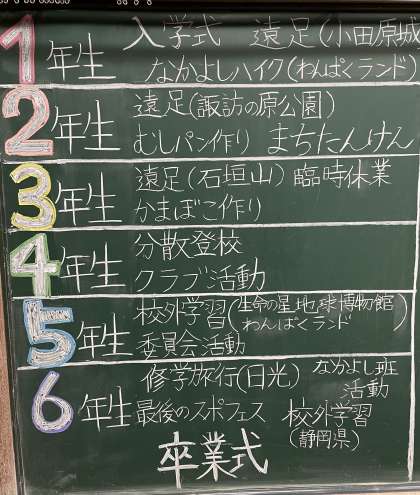 1年生 入学式 遠足(小田原城
なかよしハイク(わんぱくランド)
2年生 遠足(諏訪の原公園)
むしパン作り まちたんけん
3年生 遠足(石垣山) 臨時休業
かまぼこ作り
4年生 分散登校
クラブ活動
5年生 校外学習(生命の星地球博物館
わんぱくランド)
委員会活動
6年生 修学旅行(日光) なかよし班
活動
最後のスポフェス 校外学習
(静岡県)
卒業式